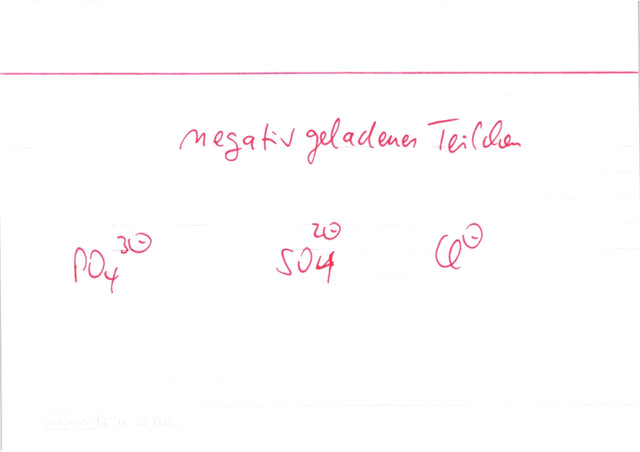 negativ geladenes Teilchen
PO₄³⊖ SO₄²⊖ Cl⊖